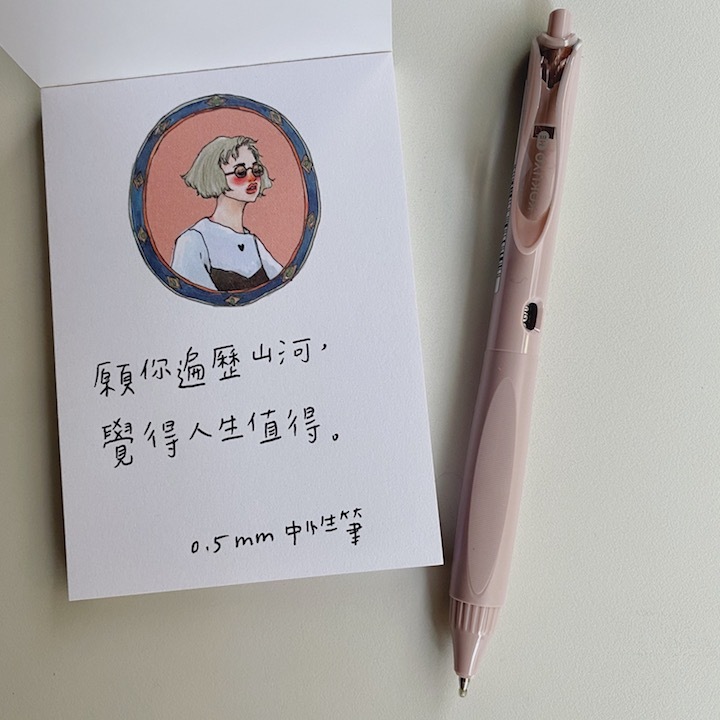 願你遍歷山河，
覺得人生值得。
0.5mm 中性筆